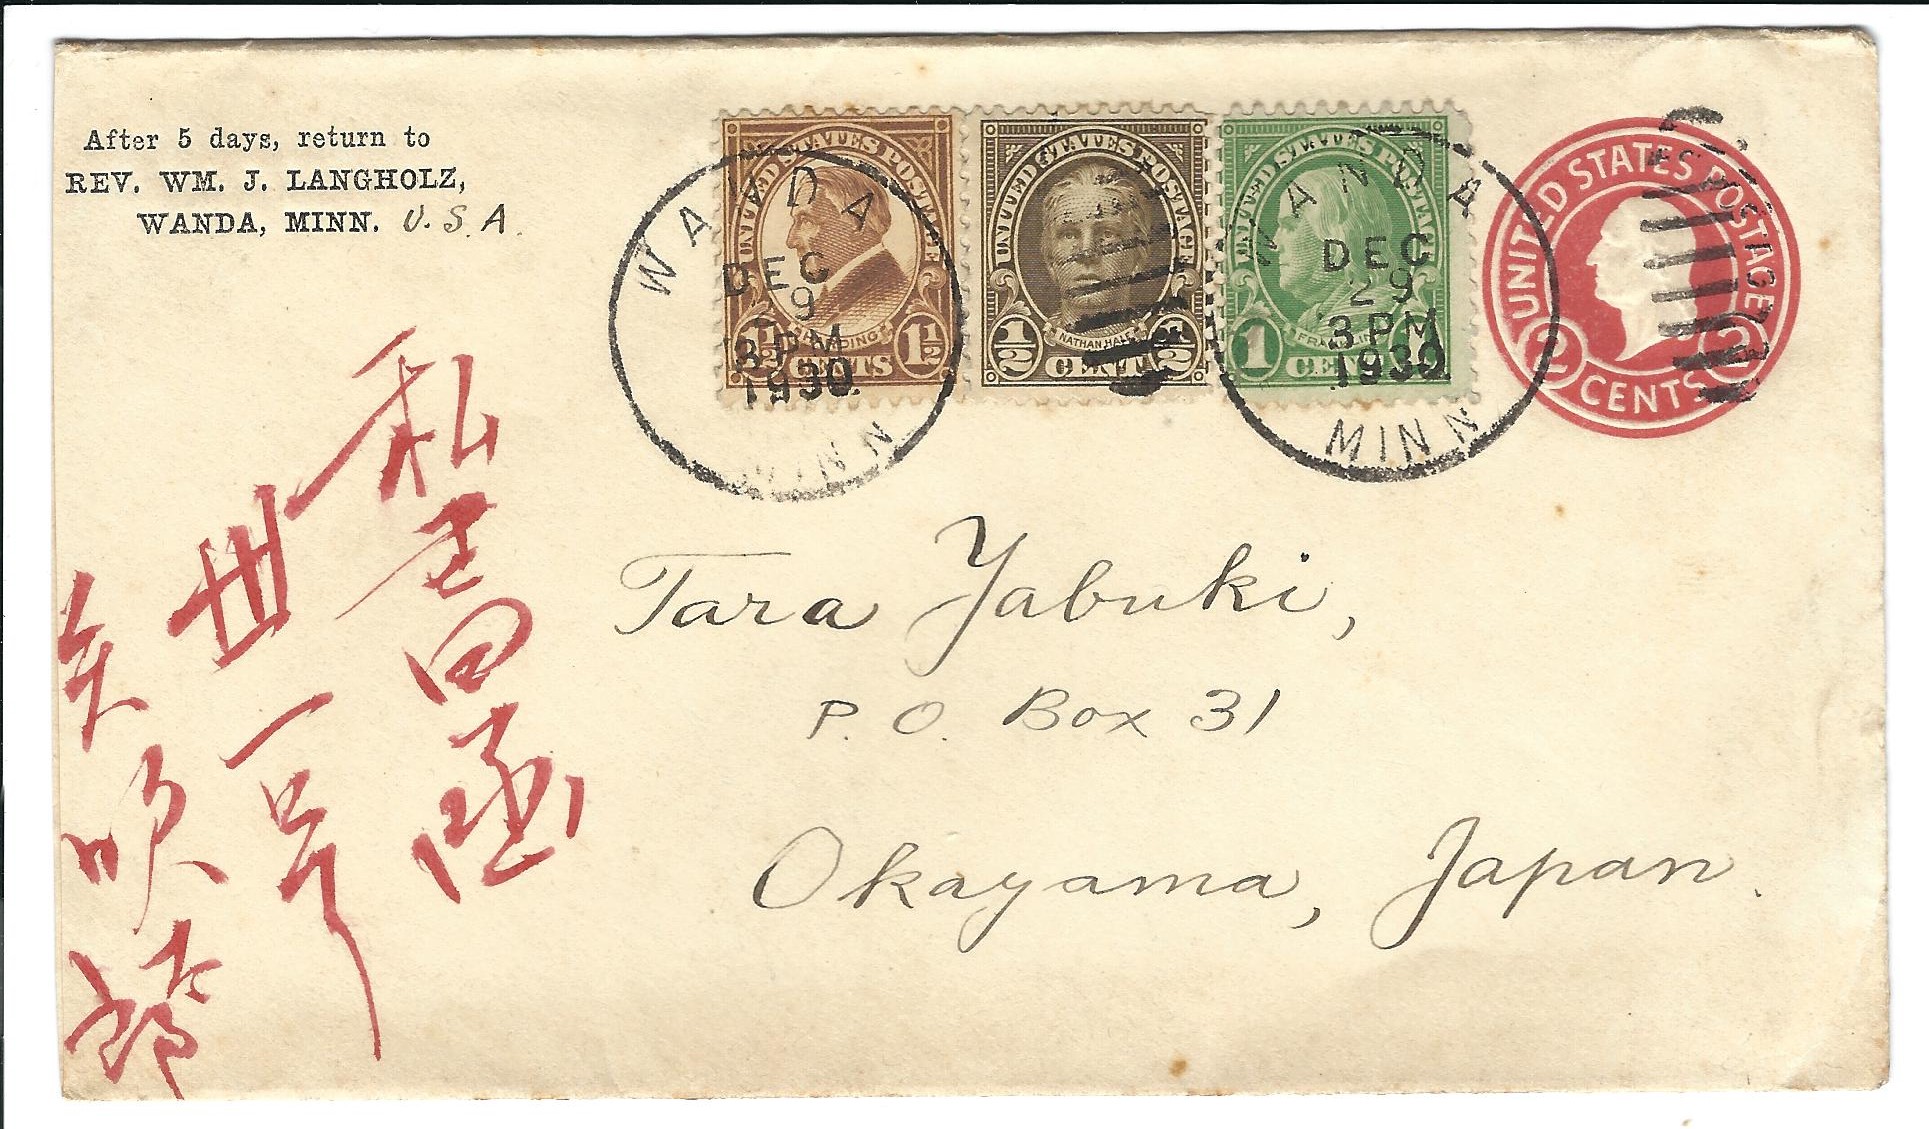 After 5 days, return to
REV. WM. J. LANGHOLZ,
WANDA, MINN. U.S.A.
UNITED STATES POSTAGE
HARDING
1½ CENTS 1½
UNITED STATES POSTAGE
NATHAN HALE
½ CENT ½
UNITED STATES POSTAGE
FRANKLIN
1 CENT 1
UNITED STATES POSTAGE
2 CENTS 2
WANDA
DEC
29
3 PM
1930
MINN
WANDA
DEC
29
3 PM
1930
MINN
Tara Yabuki,
P.O. Box 31
Okayama, Japan.
私書函
卅一号
矢吹太郎